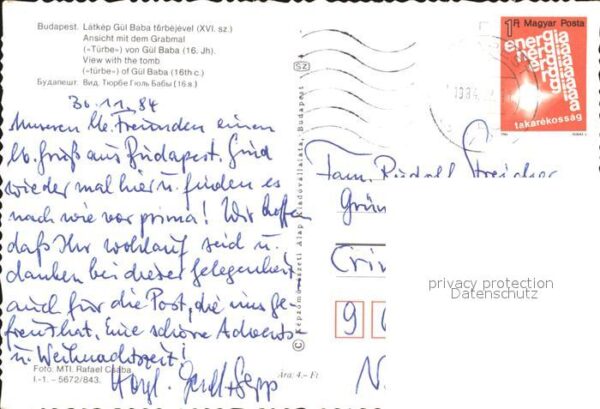 Budapest. Látkép Gül Baba türbéjével (XVI. sz.)
Ansicht mit dem Grabmal
(«Türbe») von Gül Baba (16. Jh).
View with the tomb
(«türbe») of Gül Baba (16th c.)
Будапешт Вид. Тюрбе Гюль Бабы (16 в)
30.11.84
Unseren lb. Freunden einen
lb. Gruß aus Budapest. Sind
wieder mal hier u. finden es
nach wie vor prima! Wir hoffen
daß Ihr wohlauf seid u.
danken bei dieser Gelegenheit
auch für die Post, die uns ge-
freut hat. Eine schöne Advents-
u. Weihnachtszeit!
Foto: MTI. Rafael Csaba
I.-1. - 5672/843.
Ára: 4.- Ft
Hzgl.
Sepp
SZ
© Képzőművészeti Alap Kiadóvállalata, Budapest
1 Ft Magyar Posta
energia
energia
takarékosság
1984
Fam. Rudolf Streicher
Grün
Crim
9 6
privacy protection
Datenschutz